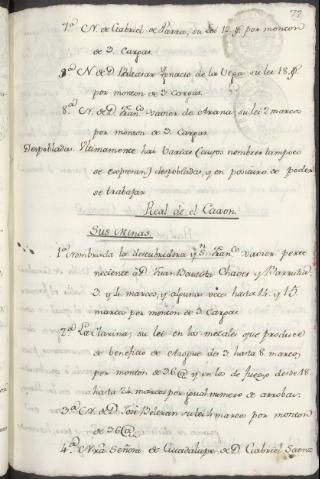 77
7.ª N. de Gabriel de Parra, su lei 12 p.s por monton
de 3. Cargas.
8.ª N. de D. Baltasar Ygnacio de la Vega su lei 18. p.s
por monton de 3. Cargas.
8.ª N. de D. Fran.co Xavier de Arana, su lei 2 marcos
por monton de 3. Cargas.
Despobladas. Ultimamente hai varias (cuyos nombres tampoco
se expresan) despobladas, y en postura de poder
se trabajar
Real de el Caxon.
Sus Minas.
1.ª Nombrada la descubridora y S.n Fran.co Xavier perte
neciente a D. Juan Bautista Chaves y
3. y 4 marcos, y algunas veces hasta 14. y 15.
marcos por monton de 3. Cargas
2.ª La su lei en los metales que produce
de beneficio de Azogue de 3 hasta 8 marcos
por monton de 36 @ y en los de fuego desde 18.
hasta 24 marcos por igual numero de arrobas.
3.ª N. de D. José Beltran su lei 4 marcos por monton
de 36 @.
4.ª N.tra Señora de Guadalupe de D. Gabriel Saenz